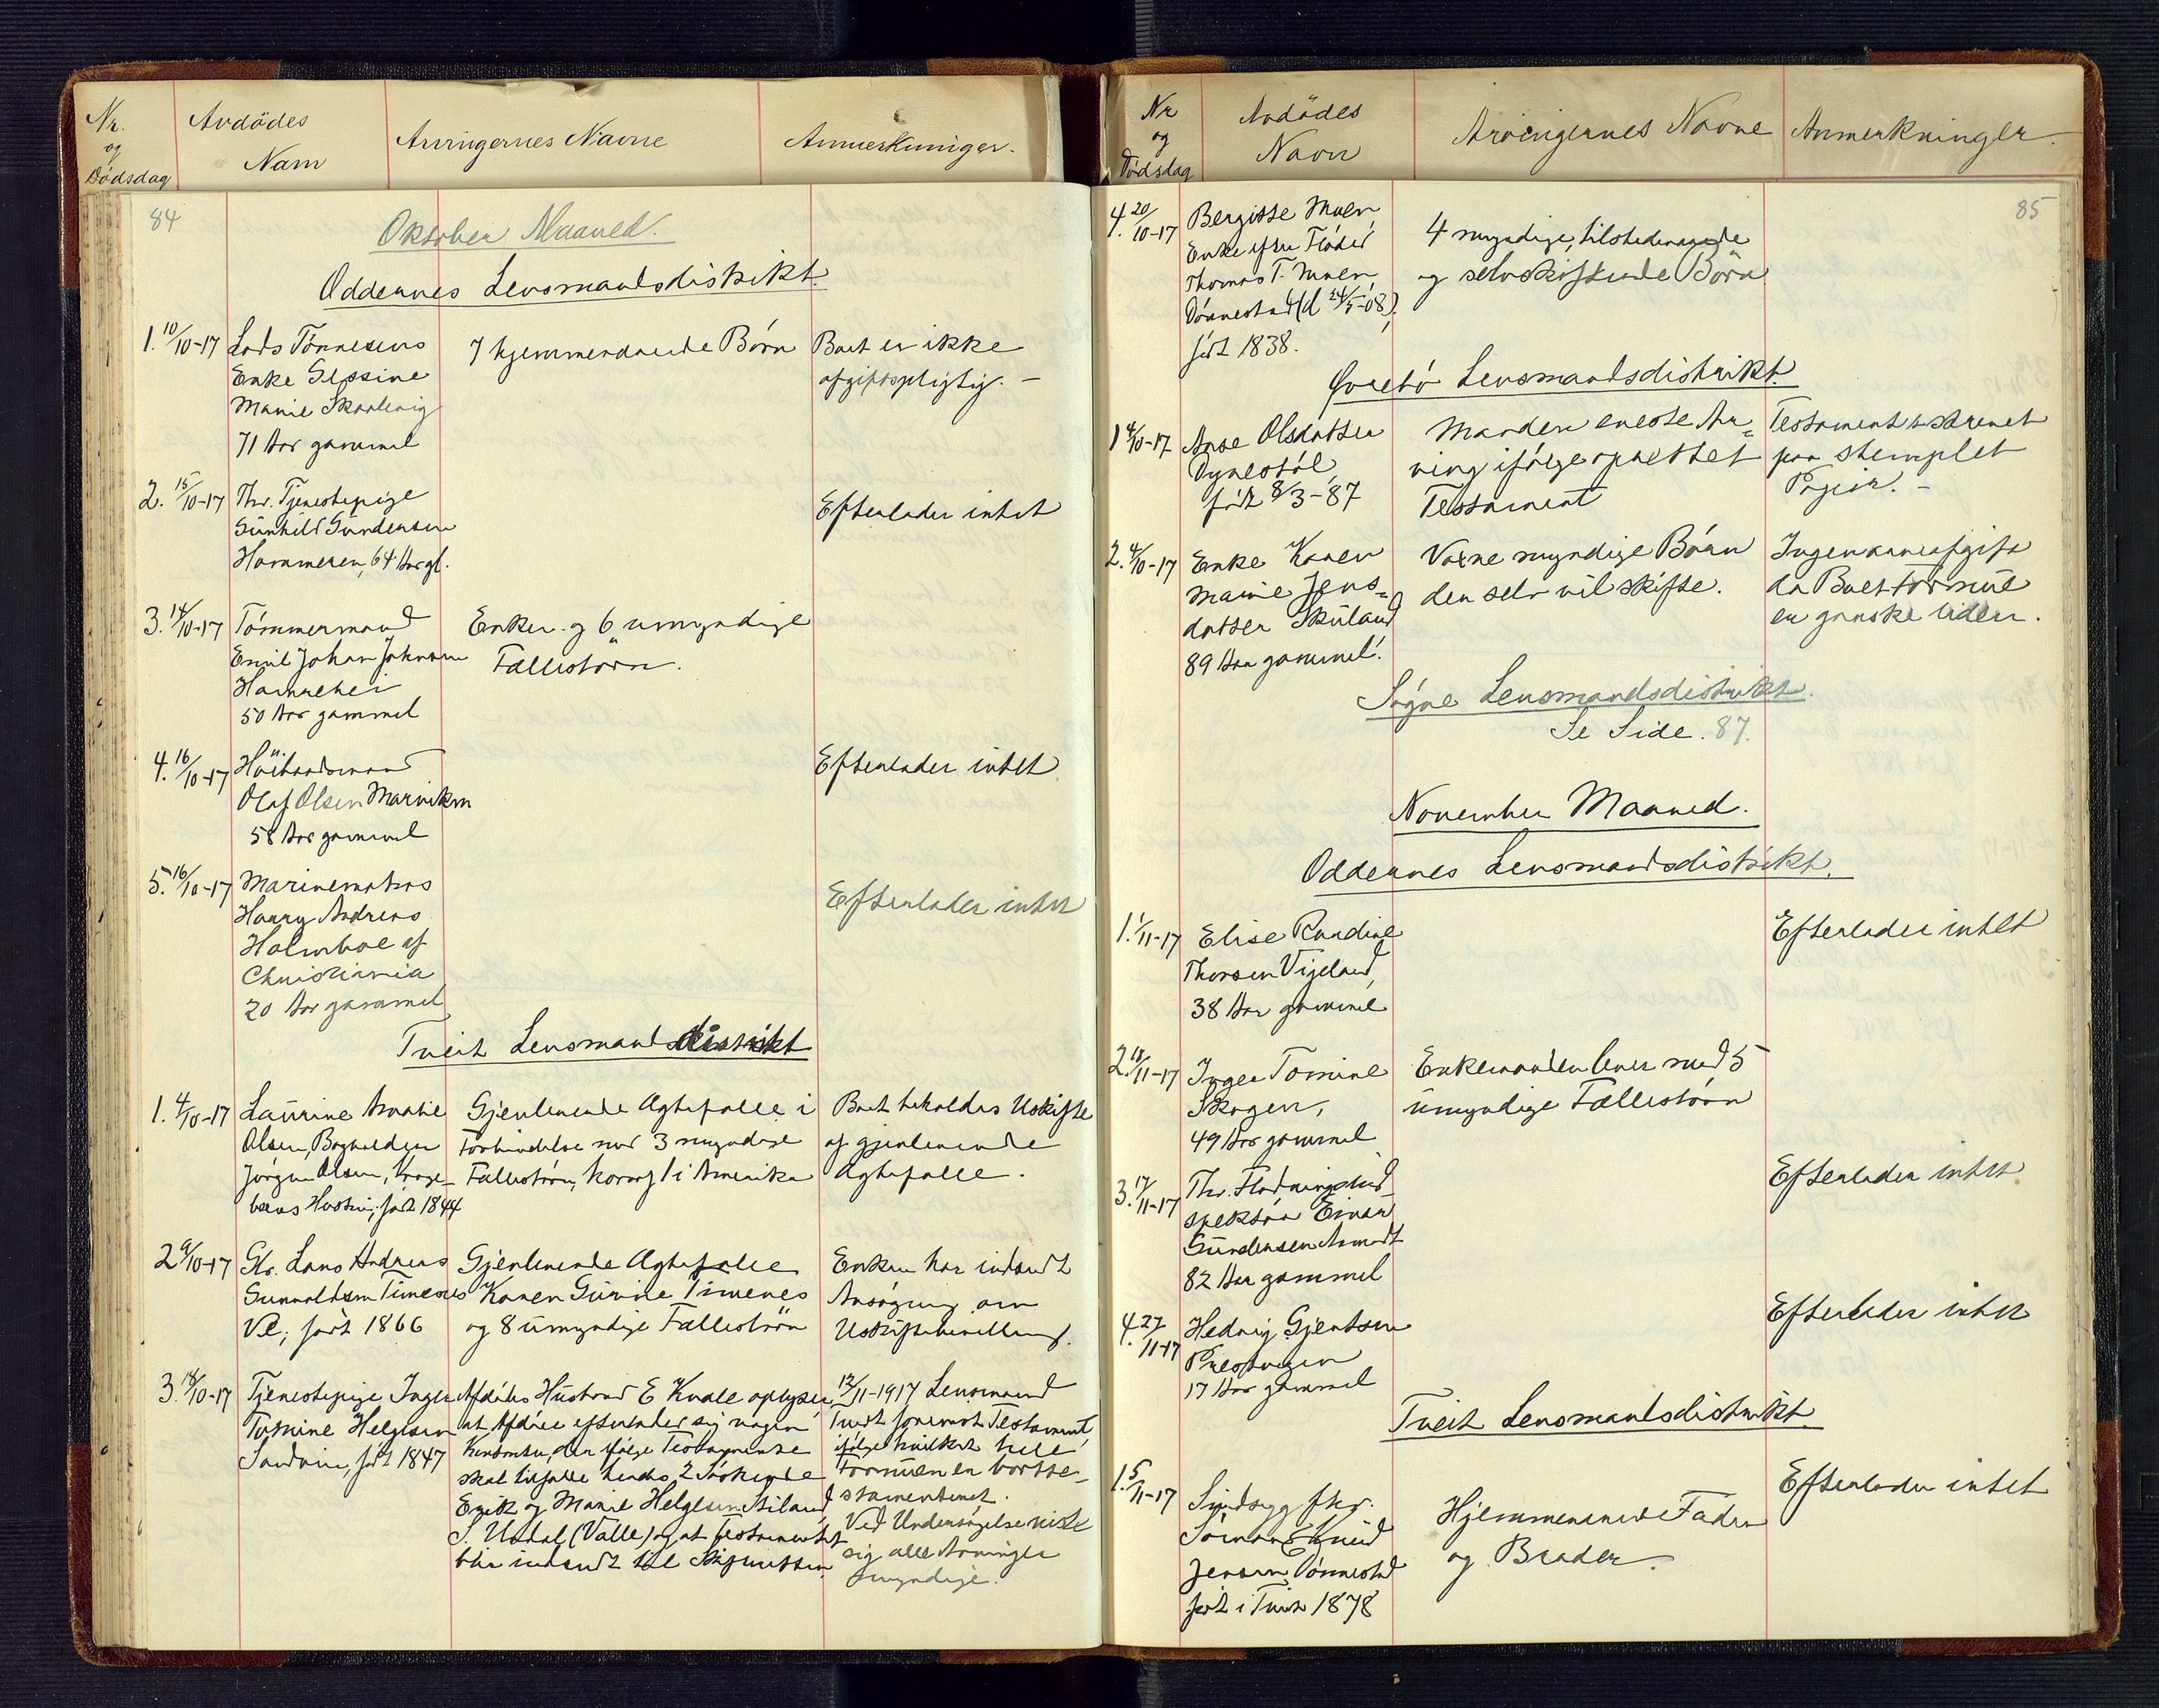 Nr.
og
Dödsdag
Avdödes
Navn
Arvingernes Navne
Anmerkninger.
84
Oktober Maaned.
Oddernes Lensmandsdistrikt.
1. 10/10-17
Lods Tönnesens
Enke
Marie
71 Aar gammel
7 hjemmeværende Börn
Boet er ikke
afgiftspligtig. -
2. 15/10-17
Fhv. Tjenestepige
Gunhild Gundersen
Hammeren, 64 Aar gl.
Efterlader intet
3. 14/10-17
Tömmermand
Emil Johan Johnsen
Hannehei
50 Aar gammel
Enken og 6 umyndige
Fællesbörn.
4. 16/10-17
Olaf Olsen Marviken
58 Aar gammel
Efterlader intet
5. 16/10-17
Marinematros
Harry Andreas
Holmboe af
Christiania
20 Aar gammel
Efterlader intet
Tveit Lensmandsdistrikt
1. 4/10-17
Laurine Amalie
Olsen, Bogholder
Jörgen Olsen,
Hustru, födt 1844
Gjenlevende Ægtefælle i
Forbindelse med 3 myndige
Fællesbörn, hvoraf 1 i Amerika
Boet beholdes Uskifte
af gjenlevende
Ægtefælle.
2 9/10-17
Gbr. Lars Andreas
Gunvaldsen Timenes
Ve, födt 1866
Gjenlevende Ægtefælle
Karen Gurine Timenes
og 8 umyndige Fællesbörn
Enken har indsendt
Ansögning om
Uskiftebevilling.
3. 18/10-17
Tjenestepige Inger
Tomine Helgesen
Sandvin, födt 1847
Afdödes Husbond E Kvale oplyser
at Afdöde efterlader sig nogen
Kontanter, der ifölge Testamente
skal tilfalde hendes 2 Söskende
Erik og Marie Helgesen
S. Undal (Valle) og at Testamentet
blir indsendt til Skifteretten
12/11-1917 Lensmand
Tveit Testament,
ifölge hvilket hele
Formuen er bortte-
stamenteret.
Ved Undersögelse viste
sig alle Arvinger
myndige.
Nr
og
Dödsdag
Avdödes
Navn
Arvingernes Navne
Anmerkninger.
85
4. 20/10-17
Bergitte Moen,
Enke efter
Thomas T. Moen,
Dönnestad (d 24/5-08),
födt 1838.
4 myndige, tilstedeværende
og selvskiftende Börn
Øvrebö Lensmandsdistrikt.
1 4/10-17
Anse Olsdatter
Dynestöl,
födt 8/3-87
Manden eneste Ar-
ving ifölge oprettet
Testament
Testament skrevet
paa stemplet
Papir. -
2. 4/10-17
Enke Karen
Marie Jens-
datter Skuland
89 Aar gammel.
Voxne myndige Börn
der selv vil skifte.
Ingen arveafgift
da Boets Formue
er ganske liden.
Sögne Lensmandsdistrikt.
Se Side. 87.
November Maaned.
Oddernes Lensmandsdistrikt.
1. 1/11-17
Elise Randine
Thorsen Vigeland,
38 Aar gammel
Efterlader intet
2. 18/11-17
Inger Tomine
Skogen,
49 Aar gammel
Enkemanden lever med 5
umyndige Fællesbörn
3. 17/11-17
Fhv. Flödningsind-
spektör Einar
Gundersen
82 Aar gammel
Efterlader intet
4. 27/11-17
Hedvig Gjertsen
17 Aar gammel
Efterlader intet
Tveit Lensmandsdistrikt.
1. 5/11-17
Sindssyg fhv.
Sömand Knud
Jensen Dönnestad
födt i Tveit 1878
Hjemmeværende Fader
og Broder.
Efterlader intet